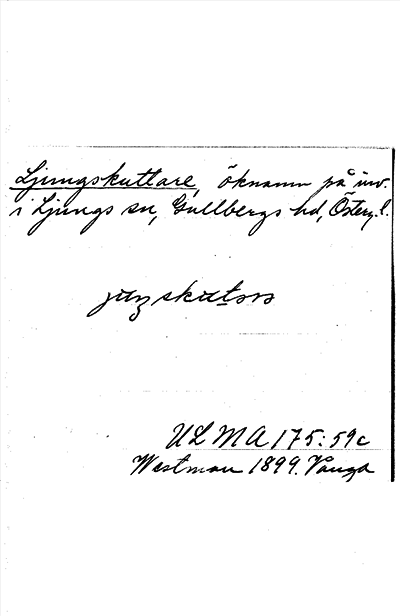 Ljungskuttare, öknamn på inv.
i Ljungs sn, Gullbergs hd, Österg. l.
ULMA 175: 59c
Westman 1899. Vånga